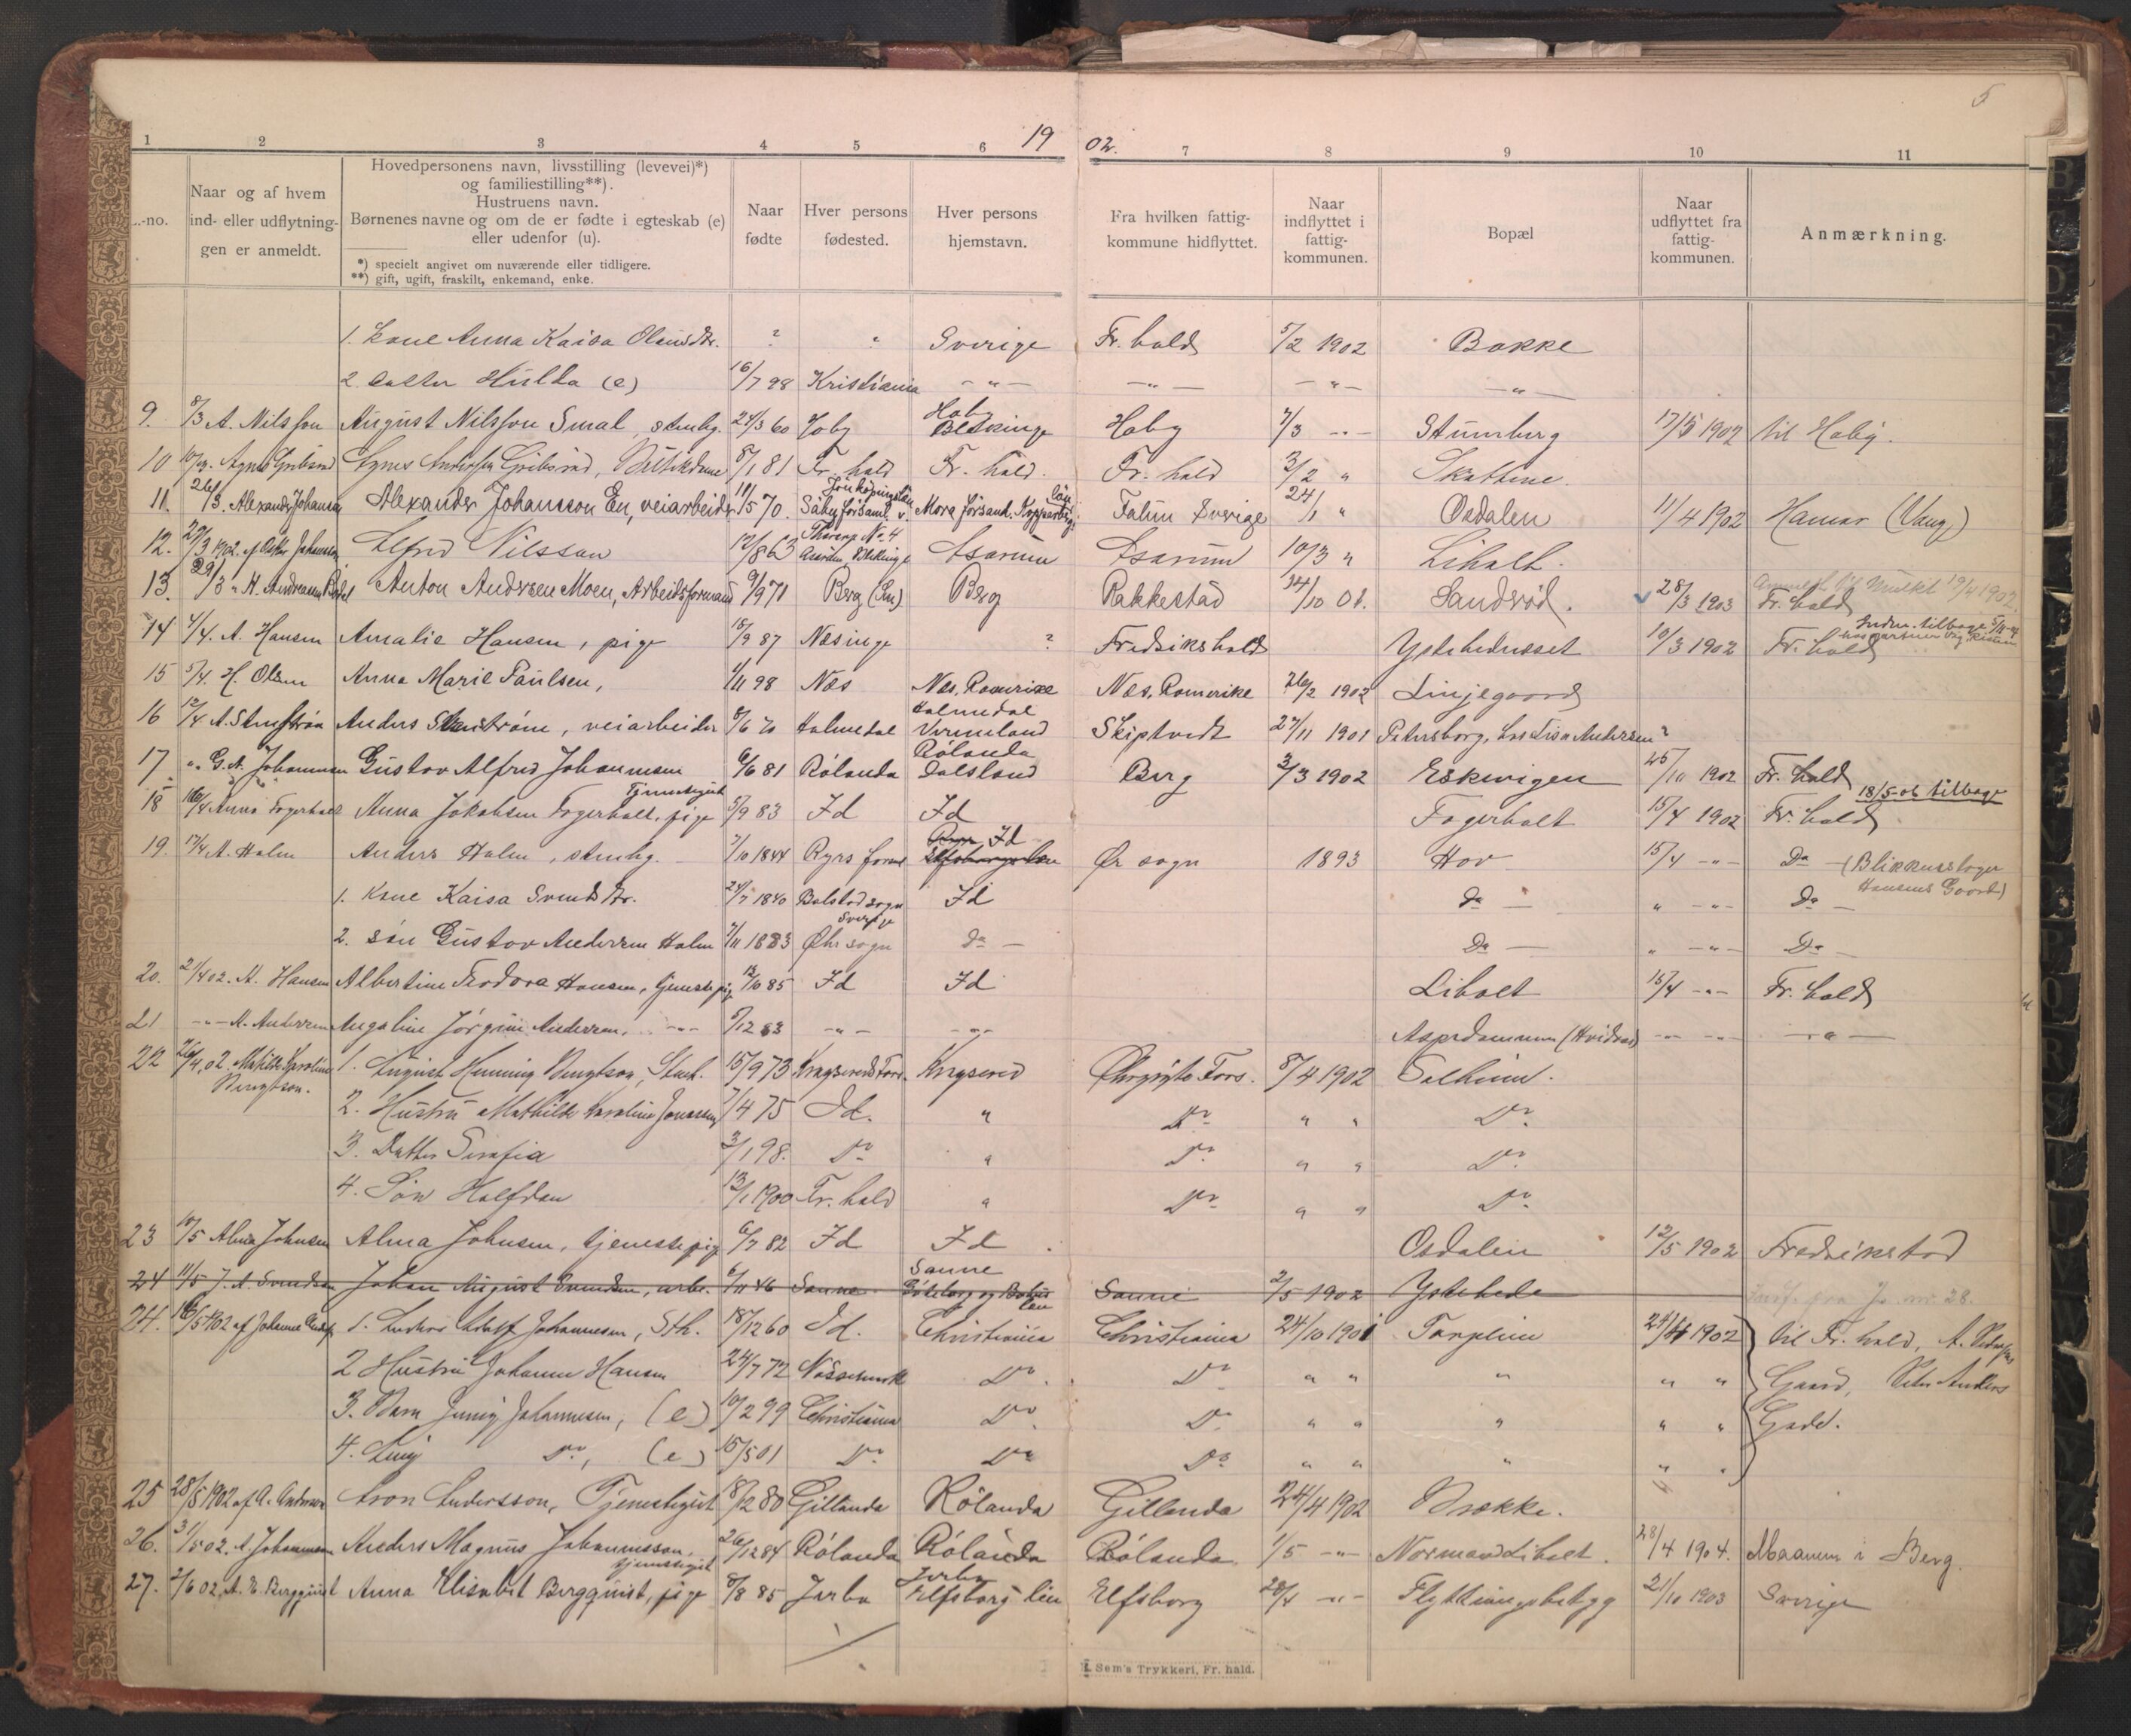 5
1902.
1 2 3 4 5 6 7 8 9 10 11
-no.
Naar og af hvem ind- eller udflytningen er anmeldt.
Hovedpersonens navn, livsstilling (levevei)*) og familiestilling**).
Hustruens navn.
Børnenes navne og om de er fødte i egteskab (e) eller udenfor (u).
*) specielt angivet om nuværende eller tidligere.
**) gift, ugift, fraskilt, enkemand, enke.
Naar fødte
Hver persons fødested.
Hver persons hjemstavn.
Fra hvilken fattigkommune hidflyttet.
Naar indflyttet i fattigkommunen.
Bopæl
Naar udflyttet fra fattigkommunen.
Anmærkning.
1. Kone Anna Kaisa Olausdtr. ? " Sverige Fr.hald 5/2 1902 Bakke
2. datter Hulda (e) 16/7 98 Kristiania - " - - " - - " - - " -
9. 8/3 A. Nilsson August Nilsson Smal, stenhg. 24/3 60 Hoby Hoby Blekinge Hoby 7/3 - " - Stumberg 17/5 1902 til Hoby.
10 Agnes 8/1 81 Fr. hald Fr. hald. Fr. hald 3/2 " Skattene
11. 26/3. Alexander Johansson Alexander Johansson En, veiarbeider 11/5 70. Säby församl. Jönköpings län Mora församl. Kopparbergs län Falun Sverige 24/1 " Osdalen 11/4 1902 Hamar (Vang)
12. 29/3 1902. af Johansson Alfred Nilsson 12/8 63 No. 4 Blekinge Asarum Asarum 10/3 " Liholt.
13. 29/3 " Anton Andersen Moen, Arbeidsformand 9/9 71 Berg (Sm) Berg Rakkestad 14/10 01. Sandrød. 28/3 1903 Fr. hald 19/4 1902.
14 4/4. A. Hansen Amalie Hansen, pige 18/9 87 Næsinge ? Fredrikshald Ystehedeset 10/3 1902 Fr. hald tilbage
15 5/4. H. Olsen Anna Marie Paulsen, 1/11 98 Næs Næs, Romerike Næs, Romerike 26/2 1902 Linjegaard
16 12/4 A. Stenstrøm Anders Stenstrøm, veiarbeider 8/6 70 Holmedal Holmedal Vermland Skiptvedt 27/11 1901 Petersborg, hos Lisa Andersen?
17 " G. A. Johannesen Gustav Alfred Johannesen 6/6 81 Rölanda Rölanda Dalsland Berg 3/3 1902 Eskevigen 15/10 1902 Fr. hald
18 16/4 Anna Fagerholt Anna Jakobsen Fagerholt, pige Tjenestepige 5/9 83 Id Id Fagerholt 15/4 1902 Fr. hald 18/5-02 tilbage
19. 17/4 A. Holm Anders Holm, stenhg. 7/10 1844 Ryrs Id Ør sogn 1893 Hov 15/4 - " - Do (Blikkenslager Hansens Gaard)
1. Kone Kaisa Svendsdtr. 24/7 1840 Bolstad sogn Sverige Id Do - " - " - Do
2. søn Gustav Andersen Holm 7/11 1883 Øhr sogn Do - Do - " - " - Do -
20. 21/4 02. A. Hansen Albertine Teodora Hansen, tjenestepige 12/10 85 Id Id Liholt 15/4 - " - Fr. hald
21 - " - A. Andersen Angeline Jørgine Andersen, - " - 5/12 83 - " - - " - Aspedammen (Hvidsø) - " - - " - - " -
22 26/4, 02. Mathilde Karoline Bengtson. 1. August Henning Bengtson, Stenh. 15/9 73 Krogsereds Fors. Krogsered 8/4 1902 Solheim.
2. Hustru Mathilde Karoline 7/4 75 Id. " Do " " Do
3. Datter Serafia 3/1 98. Do " Do " " Do
4. Søn Halfdan 13/1 1900 Fr. hald " Do " " Do
23 10/5 Alma Johnsen Alma Johnsen, tjenestepige 6/7 82 Id Id Osdalen 12/5 1902 Fredrikstad
24 11/5 J. A. Svendsen Johan August Svendsen, arbe. 6/11 46 Sanne Sanne Göteborg og Bohus len Sanne 2/5 1902 Ystehede
24. 16/5 1902 af Johanne 1. Adolf Johannesen, Sth. 18/12 60 Id. Christiania Christiania 24/10 1901 Torplien 24/4 1902 til Fr. hald, A.
2 Hustru Johanne Hansen 24/7 72 Do Do " " " " " Gaard,
3. Barn Johannesen, (e) 10/2 99 Christiania Do Do " " " " " Gade.
4. Do, (e) 15/5 01 Do Do Do " " " " "
25 28/5 1902 af A. Andersson Aron Andersson, Tjenestegut 8/2 80 Gillanda Rölanda Gillanda 24/4 1902 Brække.
26. 31/5 02. A. Johannesson Anders Magnus Johannesson, tjenestegut 26/12 84 Rölanda Rölanda Rölanda 1/5 - " - Normand Liholt. 28/4 1904. Maanen i Berg.
27. 2/6 02 A. E. Bergquist Anna Elisabet Bergquist, pige 8/8 85 Jerbo Jerbo Elfsborg len Elfsborg 28/4 - " - Flyktningebygg 21/10 1903 Sverige
E. Sem's Trykkeri, Fr. hald.